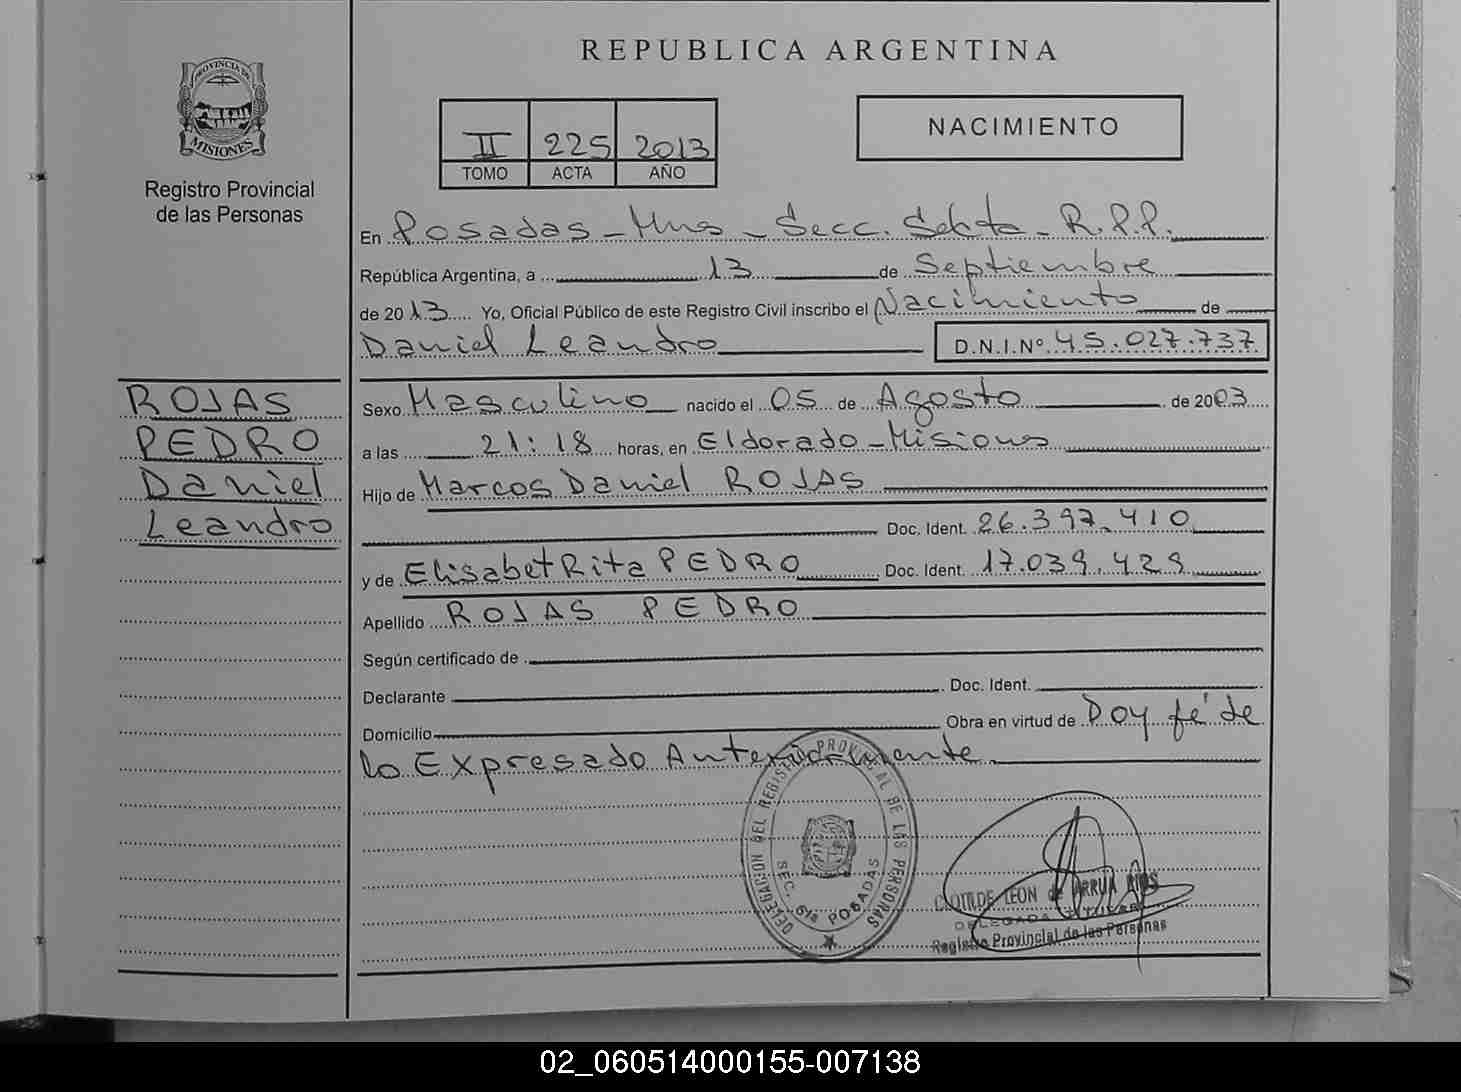 REPUBLICA ARGENTINA
PROVINCIA DE
MISIONES
Registro Provincial
de las Personas
II 225 2013
TOMO ACTA AÑO
NACIMIENTO
En Posadas - Mnes - Secc. Sexta - R.P.P.
República Argentina, a 13 de Septiembre
de 2013 Yo, Oficial Público de este Registro Civil inscribo el Nacimiento de
Daniel Leandro D.N.I.Nº 45.027.737
ROJAS
PEDRO
Daniel
Leandro
Sexo Masculino nacido el 05 de Agosto de 2003
a las 21:18 horas, en Eldorado - Misiones
Hijo de Marcos Daniel ROJAS
Doc. Ident. 26.397.410
y de Elisabet Rita PEDRO Doc. Ident. 17.039.429
Apellido ROJAS PEDRO
Según certificado de
Declarante Doc. Ident.
Domicilio Obra en virtud de Doy fé de
lo Expresado Anteriormente
DELEGACION DEL REGISTRO PROVINCIAL DE LAS PERSONAS
SEC. 6ta POSADAS
CLOTILDE LEON de ARRUA RIOS
DELEGADA TITULAR
Registro Provincial de las Personas
02_060514000155-007138